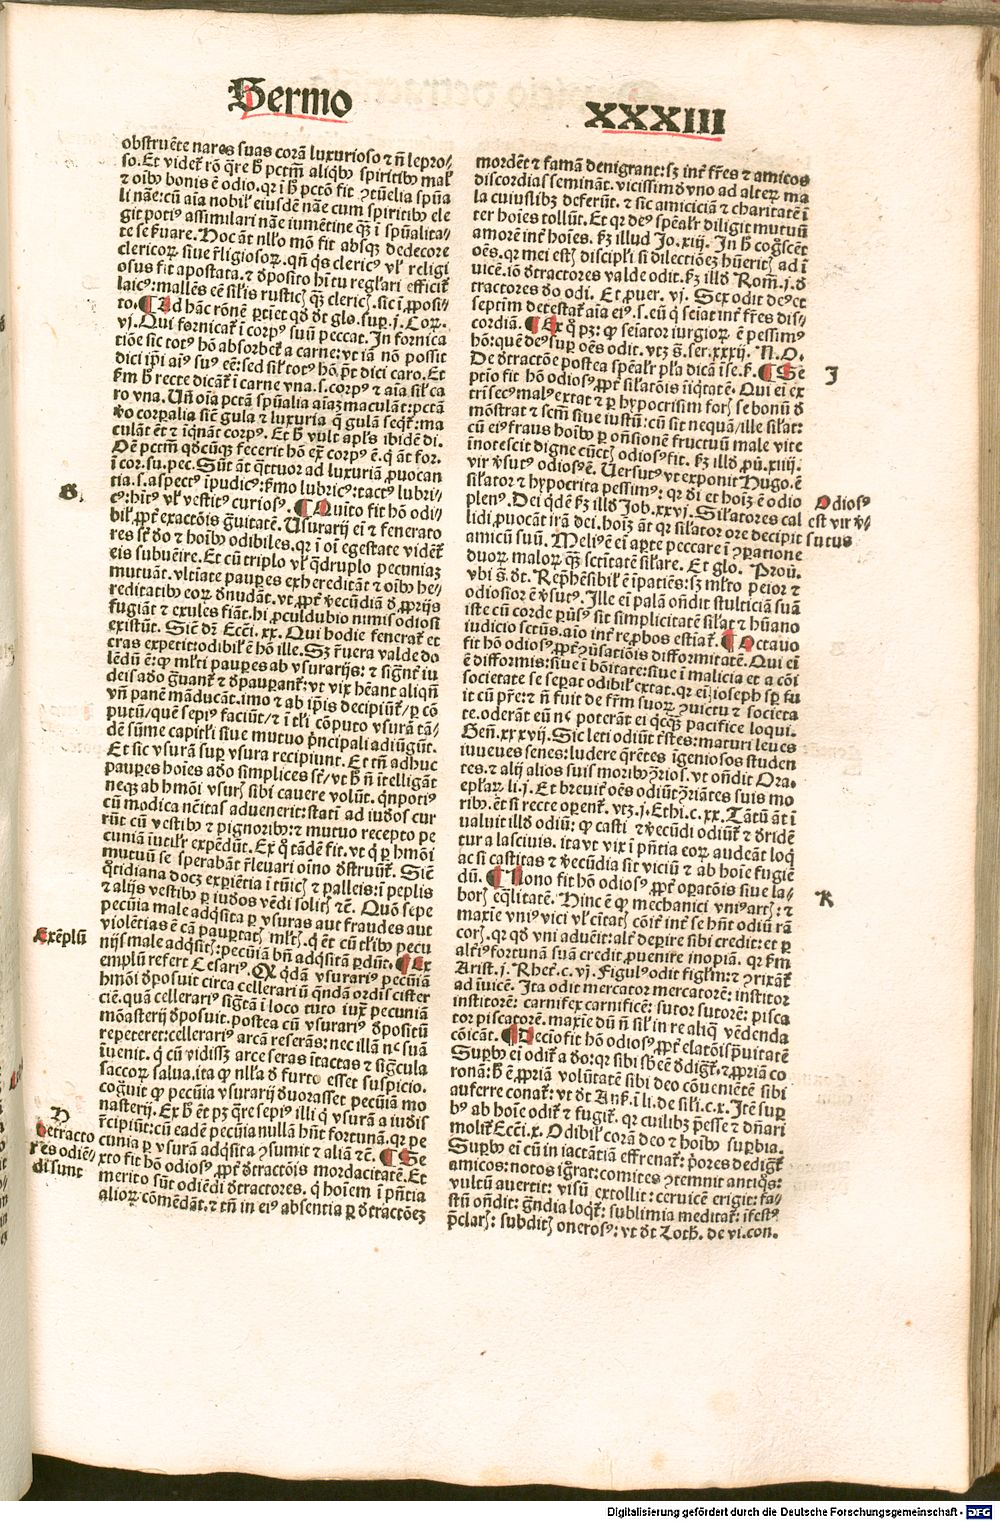 Sermo
XXXIII
obstruēte nares suas corā luxurioso ⁊ n̄ lepro⸗
so. Et videt᷑ rō q̄re h̄ pctm̄ aliqb᷒ spiritib᷒ mal᷒
⁊ oib᷒ bonis ē odio. qꝛ ī h̄ pctō fit ꝯtūelia spūa
li nāe: cū aīa nobil᷒ eiusdē nāe cum spiritib᷒ ele
git poti᷒ assimilari nāe iumētine qꝫ ī spūalita⸗
te se ẜuare. Hoc āt nllo mō fit absqꝫ dedecore
clericoꝝ siue r̄ligiosoꝝ. qn̄ qs cleric᷒ vl᷒ religi
osus fit apostata. ⁊ ꝺposito hītu reglari efficit᷑
laic᷒: mallēs eē sil᷒is rustic᷒ qꝫ cleric᷒. sic ī ꝓposi⸗
to. ¶ Ad hāc rōnē ꝑtiet qꝺ ꝺt glo. suꝑ .j. Coꝝ.
vj. Qui fornicat᷑ ī corp᷒ suū peccat. In fornica
tiōe sic tot᷒ hō absorbet᷑ a carne: vt iā nō possit
dici ip̄i ai᷒ su᷒ eē: sed sil᷒ tot᷒ hō p̄t dici caro. Et
ẜm h̄ recte dicāt᷑ ī carne vna .s. corp᷒ ⁊ aīa sil᷒ ca
ro vna. Un̄ oīa pctā spūalia aīaꝫ maculāt: pctā
ꝟo corꝑalia sic̄ gula ⁊ luxuria q̄ gulā seqt᷑: ma
culāt ēt ⁊ īqnāt corp᷒. Et h̄ vult apl̄s ibidē di.
Oē pctm̄ qꝺcūqꝫ fecerit hō ex̄ corp᷒ ē. q̄ āt for.
ī cor. su. pec. Sūt āt qttuor ad luxuriā ꝓuocan
tia .s. aspect᷒ īpudic᷒: ẜmo lubric᷒: tact᷒ lubri⸗
c᷒: hīt᷒ vl᷒ vestit᷒ curios᷒. ¶ Quito fit hō odi⸗
bil᷒ ꝓpt᷑ exactōis g̃uitatē. Usurarij eī ⁊ fenerato
res st̄ ꝺo ⁊ hoīb᷒ odibiles. qꝛ ī oī egestate vidēt᷑
eis subuēire. Et cū triplo vl᷒ q̄druplo pecuniaꝫ
mutuāt. vltiate pauꝑes exhereditāt ⁊ oīb᷒ he⸗
reditatib᷒ eoꝝ ꝺnudāt. vt ꝓpt᷑ ꝟecūdiā ꝺ ꝓprijs
fugiāt ⁊ exules fiāt. hi ꝓculdubio nimis odiosi
existūt. Sic̄ dr̄ Ecci. xx. Qui hodie fenerat᷑ et
cras expetit: odibil᷒ ē hō ille. Sꝫ r̄uera valde do
lēdū ē: ꝙ ml̄ti pauꝑes ab vsurarijs: ⁊ signt᷑ iu
deis adꝺ g̃uant᷑ ⁊ ꝺpauꝑant᷑: vt vix hēant aliqn̄
vn̄ panē māducāt. imo ⁊ ab ip̄is decipiūt᷑ / ꝑ cō
putū / quē sepi᷒ faciūt / ⁊ ī tl̄i cōputo vsurā tā⸗
dē sūme capitl̄i siue mutuo p̄ncipali adiūgūt.
Et sic vsurā suꝑ vsura recipiunt. Et tn̄ adhuc
pauꝑes hoīes adꝺ simplices st̄ / vt h̄ n̄ itelligāt
neqꝫ ab hmōi vsur᷒ sibi cauere volūt. qnpoti᷒
cū modica nc̄itas aduenerit: statī ad iudꝺs cur
rūt cū vestib᷒ ⁊ pignorib᷒: ⁊ mutuo recepto pe
cuniā īutil᷒r expēdūt. Ex q̄ tādē fit. vt q̄ ꝑ hmōi
mutuū se sperabāt r̄leuari oīno ꝺstruūt᷑. Sic̄
q̄tidiana docꝫ exꝑiētia ī tūic᷒ ⁊ palleis: ī peplis
⁊ alijs vestib᷒ ꝑ iudꝺs vēdi solit᷒ ⁊c̄. Quō sepe
pecūia male adq̄sita ꝑ vsuras aut fraudes aut
violētias ē cā pauꝑtat᷒ ml̄t᷒. q̄ ēt cū tl̄ib᷒ pecu
nijs male adq̄sit᷒: pecūiā bn̄ adq̄sitā ꝑdūt. ¶ Ex
emplū refert Cesari᷒. Qꝫ qdā vsurari᷒ pecūiā
hmōi ꝺposuit circa cellerariū q̄ndā ordīs cister
ciē. quā cellerari᷒ sig̃tā ī loco tuto iux̄ pecuniā
mōasterij ꝺposuit. postea cū vsurari᷒ ꝺpositū
repeteret: cellerari᷒ arcā reserās: nec illā nc̄ suā
īuenit. q̄ cū vidissꝫ arce seras itactas ⁊ sig̃cula
saccoꝝ salua. ita ꝙ nlla ꝺ furto esset suspicio.
cog̃uit ꝙ pecūia vsurarij ꝺuorasset pecūiā mo
nasterij. Ex h̄ ēt pꝫ q̄re sepi᷒ illi q̄ vsurā a iudīs
r̄cipiūt: cū eadē pecūia nullā hn̄t fortunā. qꝛ pe
cunia ꝑ vsurā adq̄sita ꝯsumit ⁊ aliā ⁊c̄. ¶ Se
xto fit hō odios᷒ ꝓpt᷑ ꝺtractōis mordacitatē. Et
merito sūt odiēdi ꝺtractores. q̄ hoīem ī pn̄tia
alioꝝ cōmēdāt. ⁊ tn̄ in ei᷒ absentia ꝑ ꝺtractōeꝫ
G.
Exēplū
H
Detracto
res odiē⸗
di sunt
mordēt ⁊ famā denigrant: sꝫ int᷑ fr̄es ⁊ amicos
discordias semināt. vicissim ꝺ vno ad alteꝝ ma
la cuiuslibꝫ deferūt. ⁊ sic amiciciā ⁊ charitatē ī
ter hoīes tollūt. Et qꝛ de᷒ sp̄eal᷒r diligit mutuū
amorē int᷑ hoīes. ẜꝫ illud Jo. xiij. In h̄ cog̃scēt
oēs. qꝛ mei est᷒ discipl̄i si dilectiōeꝫ hūerit᷒ ad ī
uicē. iō ꝺtractores valde odit. ẜꝫ illꝺ Rom̄. j. ꝺ
tractores ꝺo odi. Et ꝓuer. vj. Sex odit de᷒ et
septim detestat᷑ aīa ei᷒ .s. eū q̄ seiat int᷑ fr̄es dis⸗
cordiā. ¶ Ex q̄ pꝫ: ꝙ seīator iurgioꝝ ē pessim᷒
hō: quē de᷒ suꝑ oēs odit. vtꝫ s̄. ser. xxxij. N. O.
De ꝺtractōe postea sp̄eal᷒r pl̄a dicā īse. ẜ. ¶ Se
ptio fit hō odios᷒ ꝓpt᷑ sil᷒atōis iīq̄tatē. Qui ei ex
tri sec᷒ mal᷒ extat ⁊ ꝑ hypocrisim for᷒ se bonū ꝺ
mōstrat ⁊ scm̄ siue iustū: cū sit neq̄uā / ille sil᷒at:
cū ei᷒ fraus hoīb᷒ ꝑ on̄sionē fructuū male vite
īnotescit digne cūct᷒ odios᷒ fit. ẜꝫ illꝺ ꝓū. xiiij.
vir ꝟsut᷒ odios᷒ ē. Uersut᷒ vt exponit Hugo. ē
sil᷒ator ⁊ hypocrita pessim᷒: qꝛ ꝺi et hoīꝫ ē odio
plen᷒. Dei q̄dē ẜꝫ illꝺ Job. xxvj. Sil᷒atores cal
lidi ꝓuocāt irā dei. hoīꝫ āt qꝛ sil᷒ator ore decipit
amicū suū. Meli᷒ ē ei aꝑte peccare ī ꝯꝑatione
duoꝝ maloꝝ qꝫ sct̄itatē sil᷒are. Et glo. Proū.
vbi s̄. ꝺt. Rep̄hēsibil᷒ ē īpatiēs: sꝫ ml̄to peior ⁊
odiosior ē ꝟsut᷒. Ille ei palā on̄dit stulticiā suā
iste cū corde ꝑūs᷒ sit simplicitatē sil᷒at ⁊ hūano
iudicio sct̄us. aīo int᷑ reꝓbos estiat᷑. ¶ Octauo
fit hō odios᷒ ꝓpt᷑ ꝯūsatiōis difformitatē. Qui eī
ē difformis: siue ī bōitate: siue ī malicia et a cōi
societate se seꝑat odibil᷒ extat. qꝛ eī ioseph sꝑ fu
it cū p̄re: ⁊ n̄ fuit de fr̄m suoꝝ ꝯuictu ⁊ societa
te. oderāt eū nc̄ poterāt ei q̄cqꝫ pacifice loqui.
Gen̄. xxxvij. Sic leti odiūt tristes: maturi leues
iuuenes senes: ludere q̄rētes īgeniosos studen
tes. ⁊ alij alios suis morib᷒ ꝯ̄rios. vt on̄dit Ora⸗
epl̄aꝝ li. j. Et breuit᷑ oēs odiūt ꝯ̄riātes suis mo
rib᷒. ēt si recte oꝑent᷑. vtꝫ .j. Ethi. c. xx. Tātū āt ī
ualuit illꝺ odiū: ꝙ casti ⁊ ꝟecūdi odiūt᷑ ⁊ ꝺridē
tur a lasciuis. ita vt vix ī pn̄tia eoꝝ audeāt loq̄
ac si castitas ⁊ ꝟecūdia sit viciū ⁊ ab hoīe fugiē
dū. ¶ Nono fit hō odios᷒ ꝓpt᷑ oꝑatōis siue la⸗
bor᷒ eq̄litatē. Hinc ē ꝙ mechanici vni᷒ art᷒: ⁊
maxīe vni᷒ vici vl᷒ cītat᷒ cōit᷑ int᷑ se hn̄t odiū rā
cor᷒. qꝛ qꝺ vni aduēit: alt᷑i deꝑire sibi credit: et ꝑ
alt᷑i᷒ fortunā suā credit ꝓuenire inopiā. qꝛ ẜm
Arist. j. Rhet᷑. c. vj. Figul᷒ odit figl̄m: ⁊ ꝯ̄rixāt᷑
ad iuicē. Ita odit mercator mercatorē: institor
institorē: carnifex carnificē: sutor sutorē: pisca
tor piscatorē. maxie dū n̄ sil᷒ in re aliq̄ vēdenda
cōicāt. ¶ Decio fit hō odios᷒ ꝓpt᷑ elatōis p̄uitatē
Suꝑb᷒ ei odit᷑ a ꝺo: qꝛ sibi sb̄ēē ꝺdigt᷑. ⁊ ꝓpriā co
ronā: h̄ ē ꝓpriā volūtatē sibi deo cōueniētē sibi
auferre conat᷑: vt ꝺt Ans᷒. ī li. de sil᷒i. c. x. Itē suꝑ
b᷒ ab hoīe odit᷑ ⁊ fugit᷑. qꝛ cuilibꝫ p̄esse ⁊ dn̄ari
molit᷑ Ecci. x. Odibil᷒ corā deo ⁊ hoīb᷒ suꝑbia.
Suꝑb᷒ ei cū in iactātiā effrenat᷑: p̄ores dedigt᷑
amicos: notos ig̃rat: comites ꝯtemnit antiq̄s:
vultū auertit: visū extollit: ceruicē erigit: fa⸗
stū on̄dit: g̃ndia loqt᷑: sublimia meditat᷑: īfest᷒
p̄clar᷒: subdit᷒ oneros᷒: vt ꝺt Loth. de vi. con.
J
Odios᷒
est vir ꝟ⸗
sutus
K
Digitalisierung gefördert durch die Deutsche Forschungsgemeinschaft - DFG